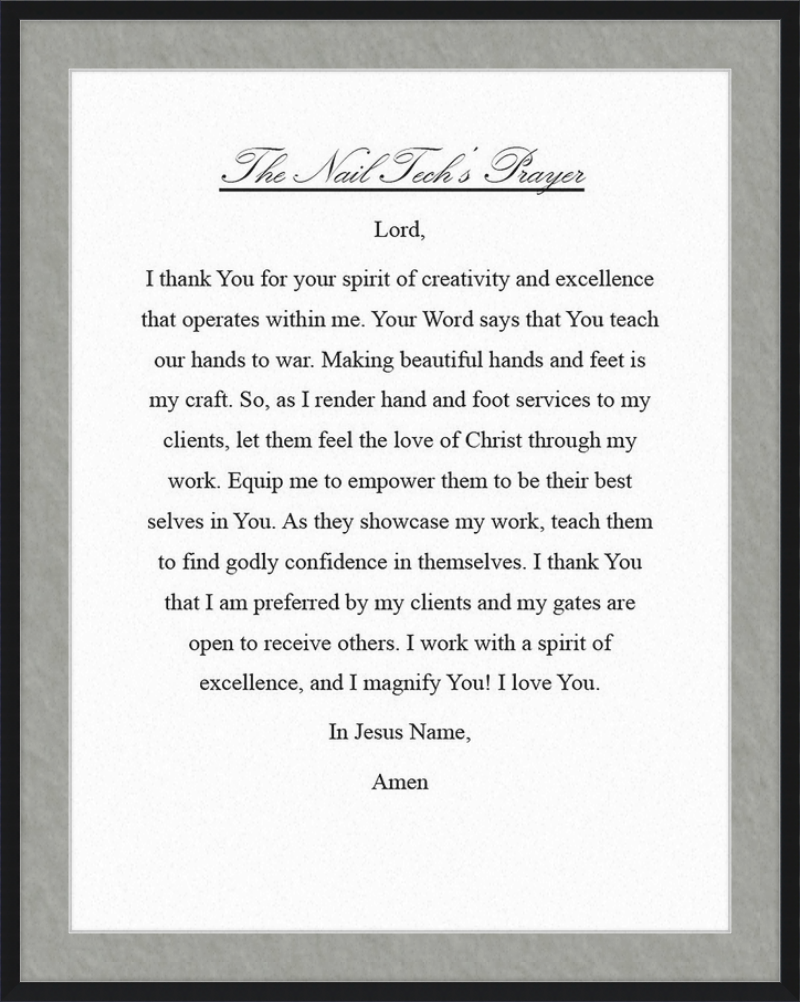 The Nail Tech's Prayer
Lord,
I thank You for your spirit of creativity and excellence
that operates within me. Your Word says that You teach
our hands to war. Making beautiful hands and feet is
my craft. So, as I render hand and foot services to my
clients, let them feel the love of Christ through my
work. Equip me to empower them to be their best
selves in You. As they showcase my work, teach them
to find godly confidence in themselves. I thank You
that I am preferred by my clients and my gates are
open to receive others. I work with a spirit of
excellence, and I magnify You! I love You.
In Jesus Name,
Amen